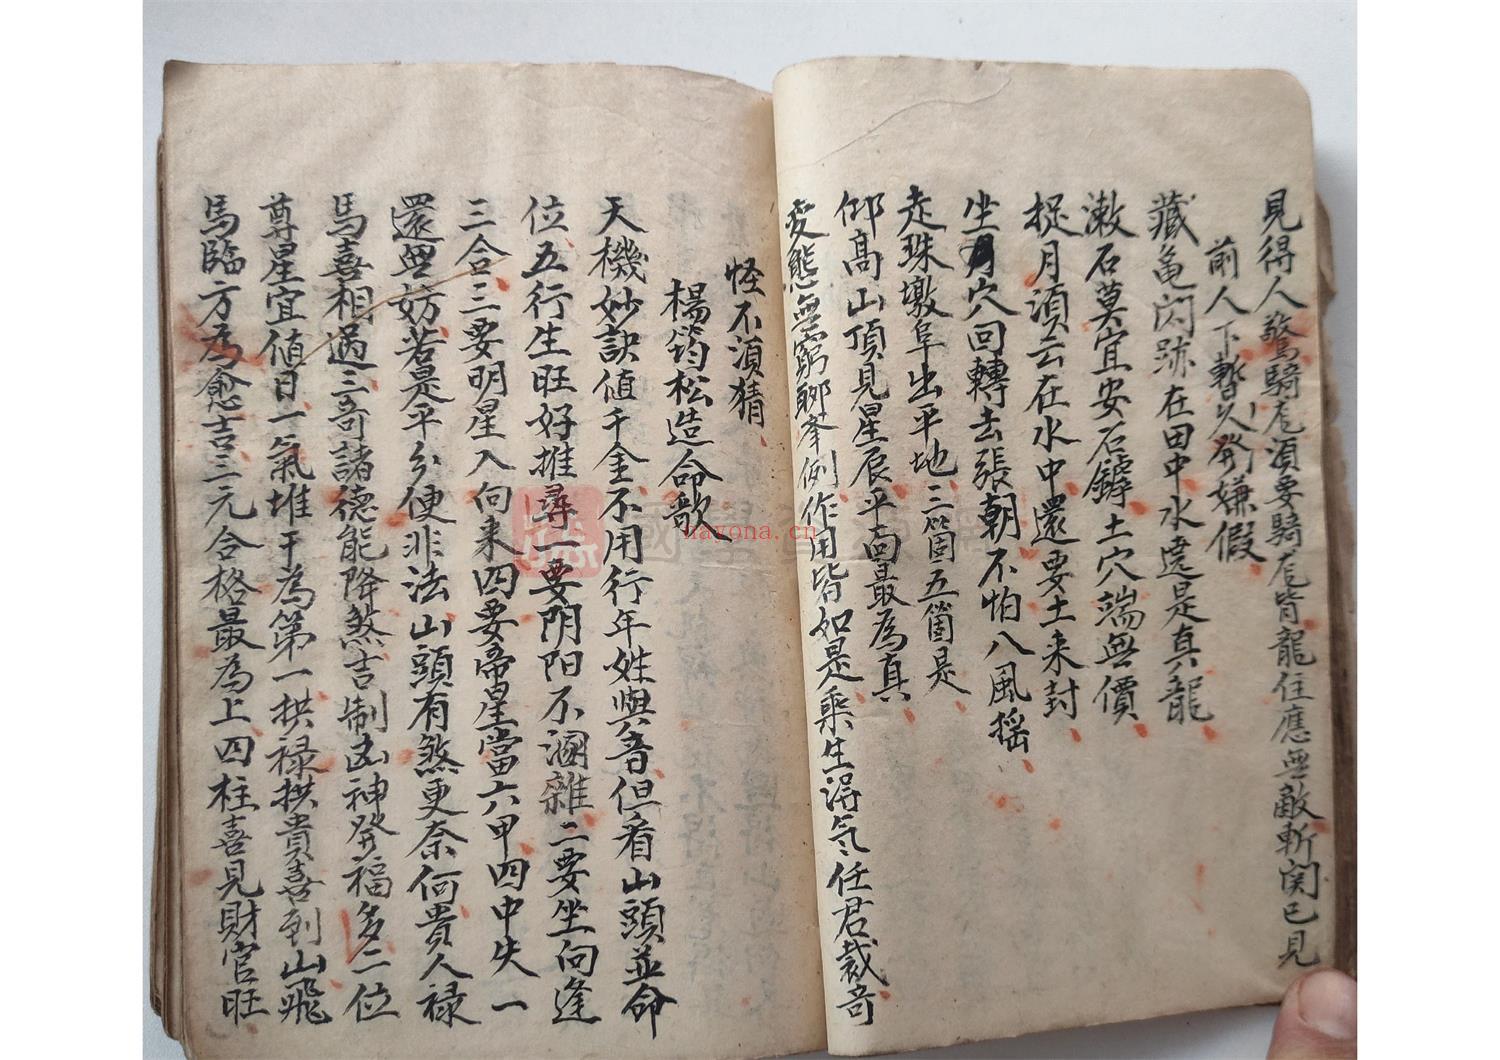 見得人驚騎龙湏要騎龙皆龍住應無敵斬関已見
前人下暫以発嫌假
藏亀閃跡在田中水遶是真龍
漱石莫宜安石鏬土穴端無價
捉月湏云在水中還要土来封
坐月穴回轉去張朝不怕八風摇
走珠墩阜出平地三箇五箇是
仰高山頂見星辰平面最為真
変態無窮聊举例作用皆如是人乘生淂气任君裁竒
怪不湏猜
楊筠松造命歌
天機妙訣值千金不用行年姓與音但看山頭並命
位五行生旺好推尋一要阴阳不溷雜二要坐向逢
三合三要明星入向来四要帝星當六甲四中失一
還無妨若是平分便非法山頭有煞更奈何貴人禄
馬喜相遇三奇諸德能降煞吉制凶神発福多二位
尊星宜值日一氣堆干為第一拱禄拱貴喜到山飛
馬臨方為愈吉三元合格最為上四柱喜見財官旺
nayona.cn